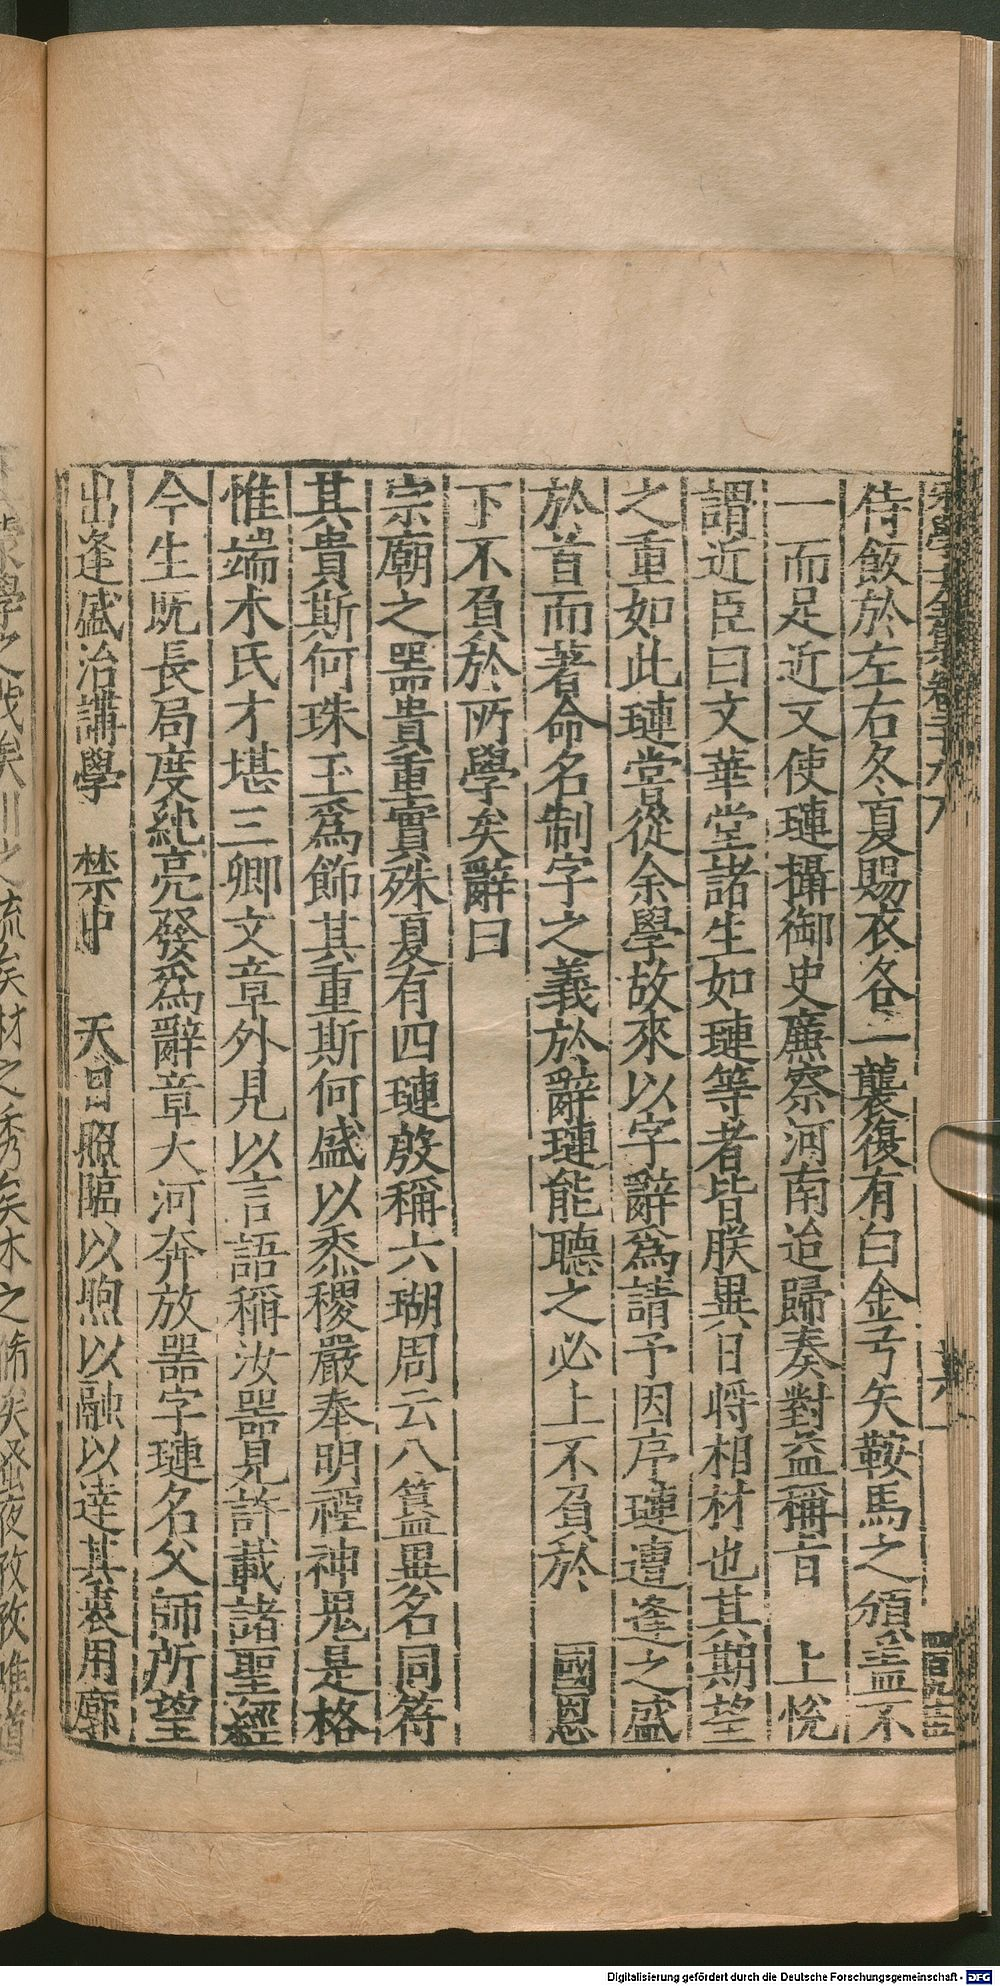 宋學士全集卷二十八
侍飯於左右冬夏賜衣各一襲復有白金弓矢鞍馬之頒盖不
一而足近又使璉攝御史廉察河南迨歸奏對益稱旨 上悅
謂近臣曰文華堂諸生如璉等者皆朕異日將相材也其期望
之重如此璉嘗從余學故來以字辭爲請予因序璉遭逢之盛
於首而著命名制字之義於辭璉能聽之必上不負於 國恩
下不負於所學矣辭曰
宗廟之器貴重實殊夏有四璉殷稱六瑚周云八簋異名同符
其貴斯何珠玉爲飾其重斯何盛以黍稷嚴奉明禋神鬼是格
惟端木氏才堪三卿文章外見以言語稱汝器見許載諸聖經
今生既長局度純亮發爲辭章大河奔放器字璉名父師所望
出逢盛治講學 禁中 天日照臨以煦以融以達其衷用廓
之秀矣
夜孜孜惟道
Digitalisierung gefördert durch die Deutsche Forschungsgemeinschaft - DFG